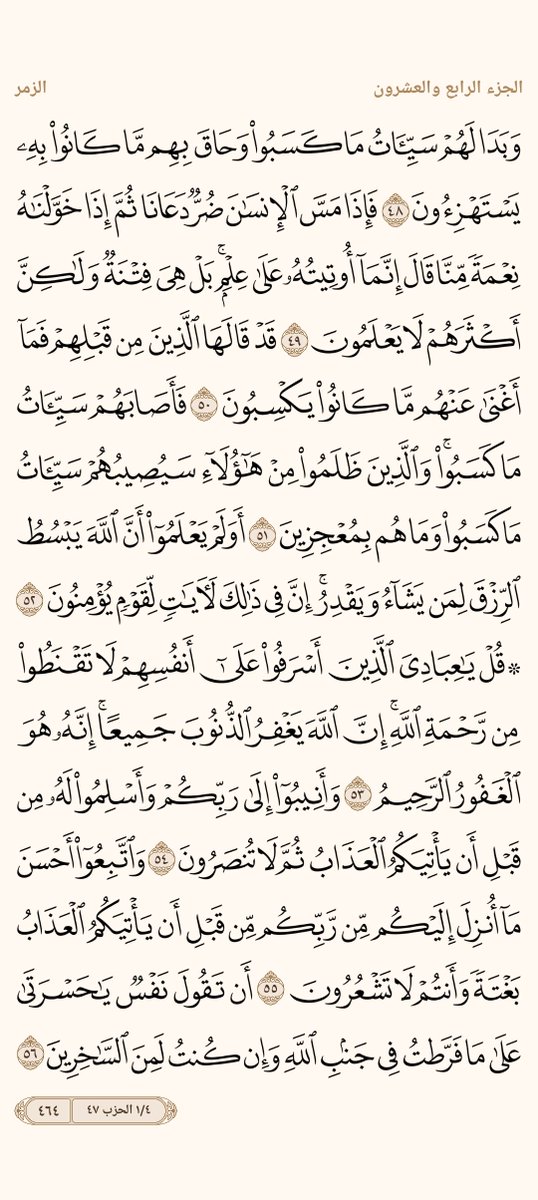 الجزء الرابع والعشرون الزمر
وَبَدَا لَهُمۡ سَيِّـَٔاتُ مَا كَسَبُواْ وَحَاقَ بِهِم مَّا كَانُواْ بِهِۦ
يَسۡتَهۡزِءُونَ ٤٨ فَإِذَا مَسَّ ٱلۡإِنسَٰنَ ضُرّٞ دَعَانَا ثُمَّ إِذَا خَوَّلۡنَٰهُ
نِعۡمَةٗ مِّنَّا قَالَ إِنَّمَآ أُوتِيتُهُۥ عَلَىٰ عِلۡمِۭۚ بَلۡ هِيَ فِتۡنَةٞ وَلَٰكِنَّ
أَكۡثَرَهُمۡ لَا يَعۡلَمُونَ ٤٩ قَدۡ قَالَهَا ٱلَّذِينَ مِن قَبۡلِهِمۡ فَمَآ
أَغۡنَىٰ عَنۡهُم مَّا كَانُواْ يَكۡسِبُونَ ٥٠ فَأَصَابَهُمۡ سَيِّـَٔاتُ
مَا كَسَبُواْۚ وَٱلَّذِينَ ظَلَمُواْ مِنۡ هَٰٓؤُلَآءِ سَيُصِيبُهُمۡ سَيِّـَٔاتُ
مَا كَسَبُواْ وَمَا هُم بِمُعۡجِزِينَ ٥١ أَوَلَمۡ يَعۡلَمُوٓاْ أَنَّ ٱللَّهَ يَبۡسُطُ
ٱلرِّزۡقَ لِمَن يَشَآءُ وَيَقۡدِرُۚ إِنَّ فِي ذَٰلِكَ لَأٓيَٰتٖ لِّقَوۡمٖ يُؤۡمِنُونَ ٥٢
۞ قُلۡ يَٰعِبَادِيَ ٱلَّذِينَ أَسۡرَفُواْ عَلَىٰٓ أَنفُسِهِمۡ لَا تَقۡنَطُواْ
مِن رَّحۡمَةِ ٱللَّهِۚ إِنَّ ٱللَّهَ يَغۡفِرُ ٱلذُّنُوبَ جَمِيعًاۚ إِنَّهُۥ هُوَ
ٱلۡغَفُورُ ٱلرَّحِيمُ ٥٣ وَأَنِيبُوٓاْ إِلَىٰ رَبِّكُمۡ وَأَسۡلِمُواْ لَهُۥ مِن
قَبۡلِ أَن يَأۡتِيَكُمُ ٱلۡعَذَابُ ثُمَّ لَا تُنصَرُونَ ٥٤ وَٱتَّبِعُوٓاْ أَحۡسَنَ
مَآ أُنزِلَ إِلَيۡكُم مِّن رَّبِّكُم مِّن قَبۡلِ أَن يَأۡتِيَكُمُ ٱلۡعَذَابُ
بَغۡتَةٗ وَأَنتُمۡ لَا تَشۡعُرُونَ ٥٥ أَن تَقُولَ نَفۡسٞ يَٰحَسۡرَتَىٰ
عَلَىٰ مَا فَرَّطتُ فِي جَنۢبِ ٱللَّهِ وَإِن كُنتُ لَمِنَ ٱلسَّٰخِرِينَ ٥٦
١/٤ الحزب ٤٧ ٤٦٤